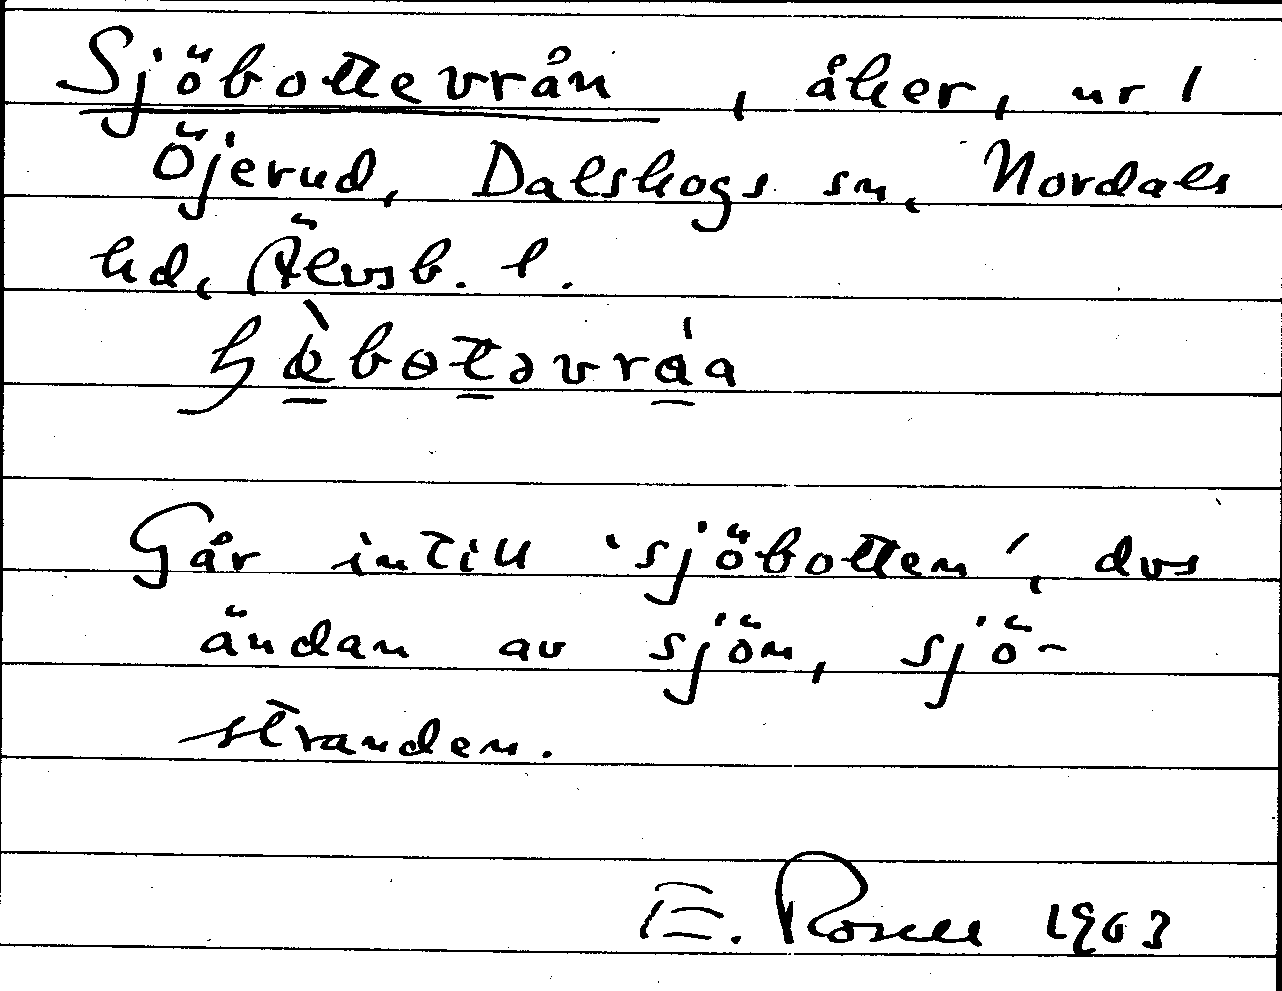 Sjöbottevrån, åker, nr 1
Öjerud, Dalskogs sn, Nordals
hd, Älvsb. l.
Går intill 'sjöbotten', dvs
ändan av sjön, sjö-
stranden.
E. Rosell 1963